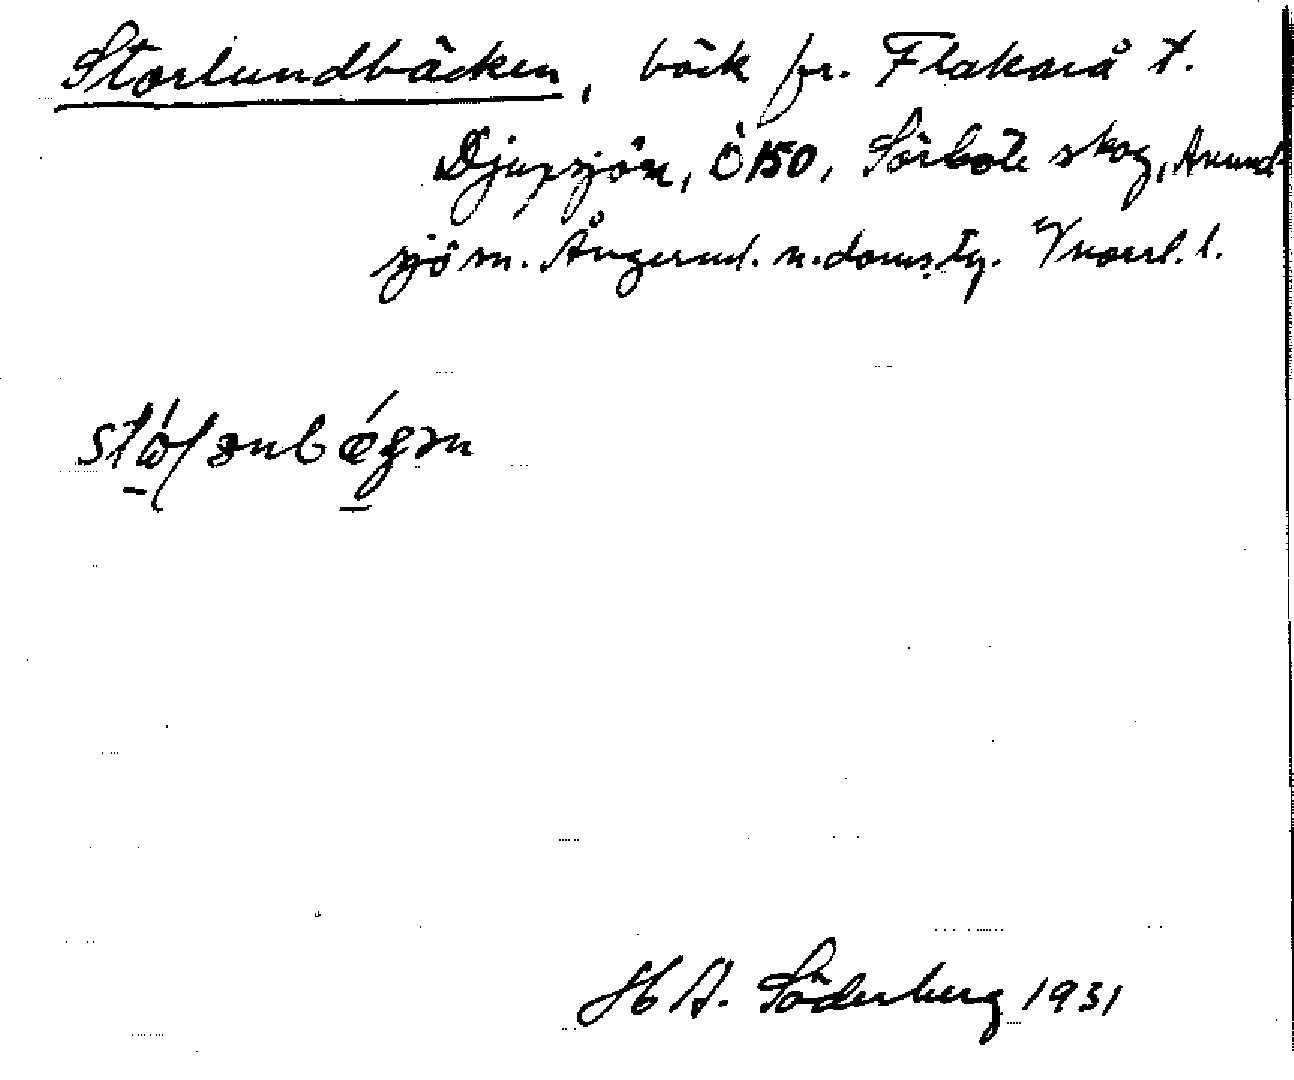 Storlundbäcken, bäck fr. Flakarå t.
Djupsjön, Ö 150, Sörböle skog, Anund-
sjö sn. Ångerml. n. doms.tg. Vnorrl. l.
H A. Söderberg 1931